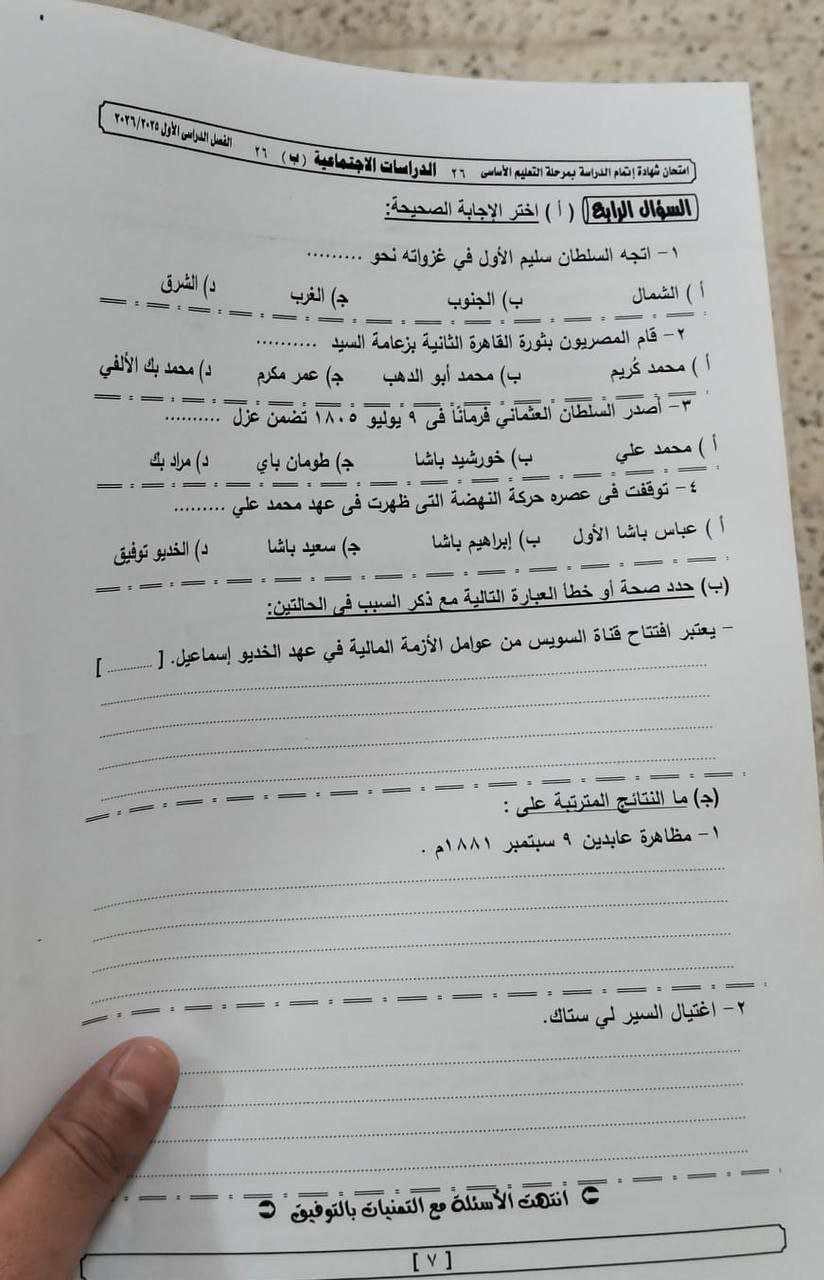 امتحان شهادة إتمام الدراسة بمرحلة التعليم الأساسى ٢٦ الدراسات الاجتماعية (ب) ٢٦ الفصل الدراسى الأول ٢٠٢٦/٢٠٢٥
السؤال الرابع (أ) اختر الإجابة الصحيحة:
١- اتجه السلطان سليم الأول في غزواته نحو .........
أ) الشمال ب) الجنوب ج) الغرب د) الشرق
٢- قام المصريون بثورة القاهرة الثانية بزعامة السيد ..........
أ) محمد كُريم ب) محمد أبو الدهب ج) عمر مكرم د) محمد بك الألفي
٣- أصدر السلطان العثماني فرمانًا فى ٩ يوليو ١٨٠٥ تضمن عزل ..........
أ) محمد علي ب) خورشيد باشا ج) طومان باي د) مراد بك
٤- توقفت فى عصره حركة النهضة التى ظهرت فى عهد محمد علي .........
أ) عباس باشا الأول ب) إبراهيم باشا ج) سعيد باشا د) الخديو توفيق
(ب) حدد صحة أو خطأ العبارة التالية مع ذكر السبب فى الحالتين:
- يعتبر افتتاح قناة السويس من عوامل الأزمة المالية في عهد الخديو إسماعيل. [ .......... ]
(ج) ما النتائج المترتبة على :
١- مظاهرة عابدين ٩ سبتمبر ١٨٨١م .
٢- اغتيال السير لي ستاك.
انتهت الأسئلة مع التمنيات بالتوفيق
[ ٧ ]